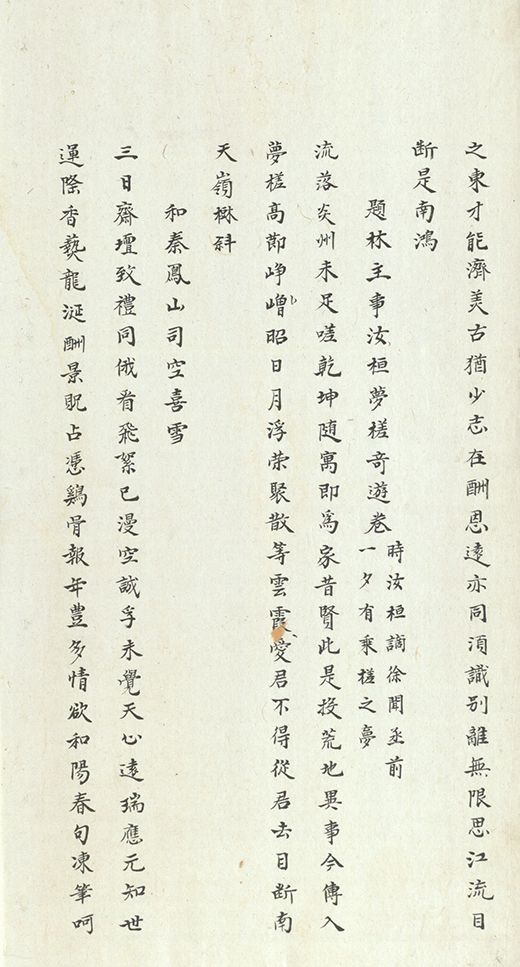 之東才能濟美古猶少志在酬恩遠亦同須識別離無限思江流目
断是南鴻
題林主事汝桓夢槎竒遊卷時汝桓謫徐聞丞前一夕有乘槎之夢
流落炎州未足嗟乾坤随寓即爲家昔賢此是投荒地異事今傳入
夢槎髙節崢嶒昭日月浮荣聚散等雲霞愛君不得從君去目断南
天嶺樹斜
和秦鳳山司空喜雪
三日齋壇致禮同俄看飛絮已漫空誠孚未覺天心遠瑞應元知世
運際香爇龍涎酬景貺占憑鷄骨報年豊多情欲和陽春句凍筆呵